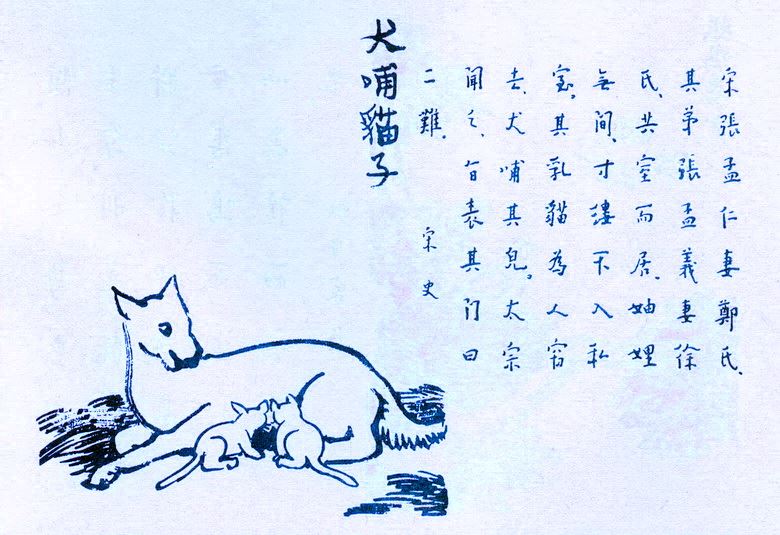 宋張孟仁妻鄭氏、
其弟張孟義妻徐
氏、共室而居。妯娌
無間、寸縷不入私
室。其乳貓為人窃
去、犬哺其兒。太宗
聞之、旨表其门曰
二難。 宋史
犬哺貓子